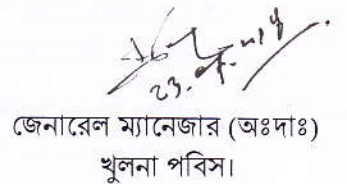 জেনারেল ম্যানেজার (অঃদাঃ)
খুলনা পবিস।